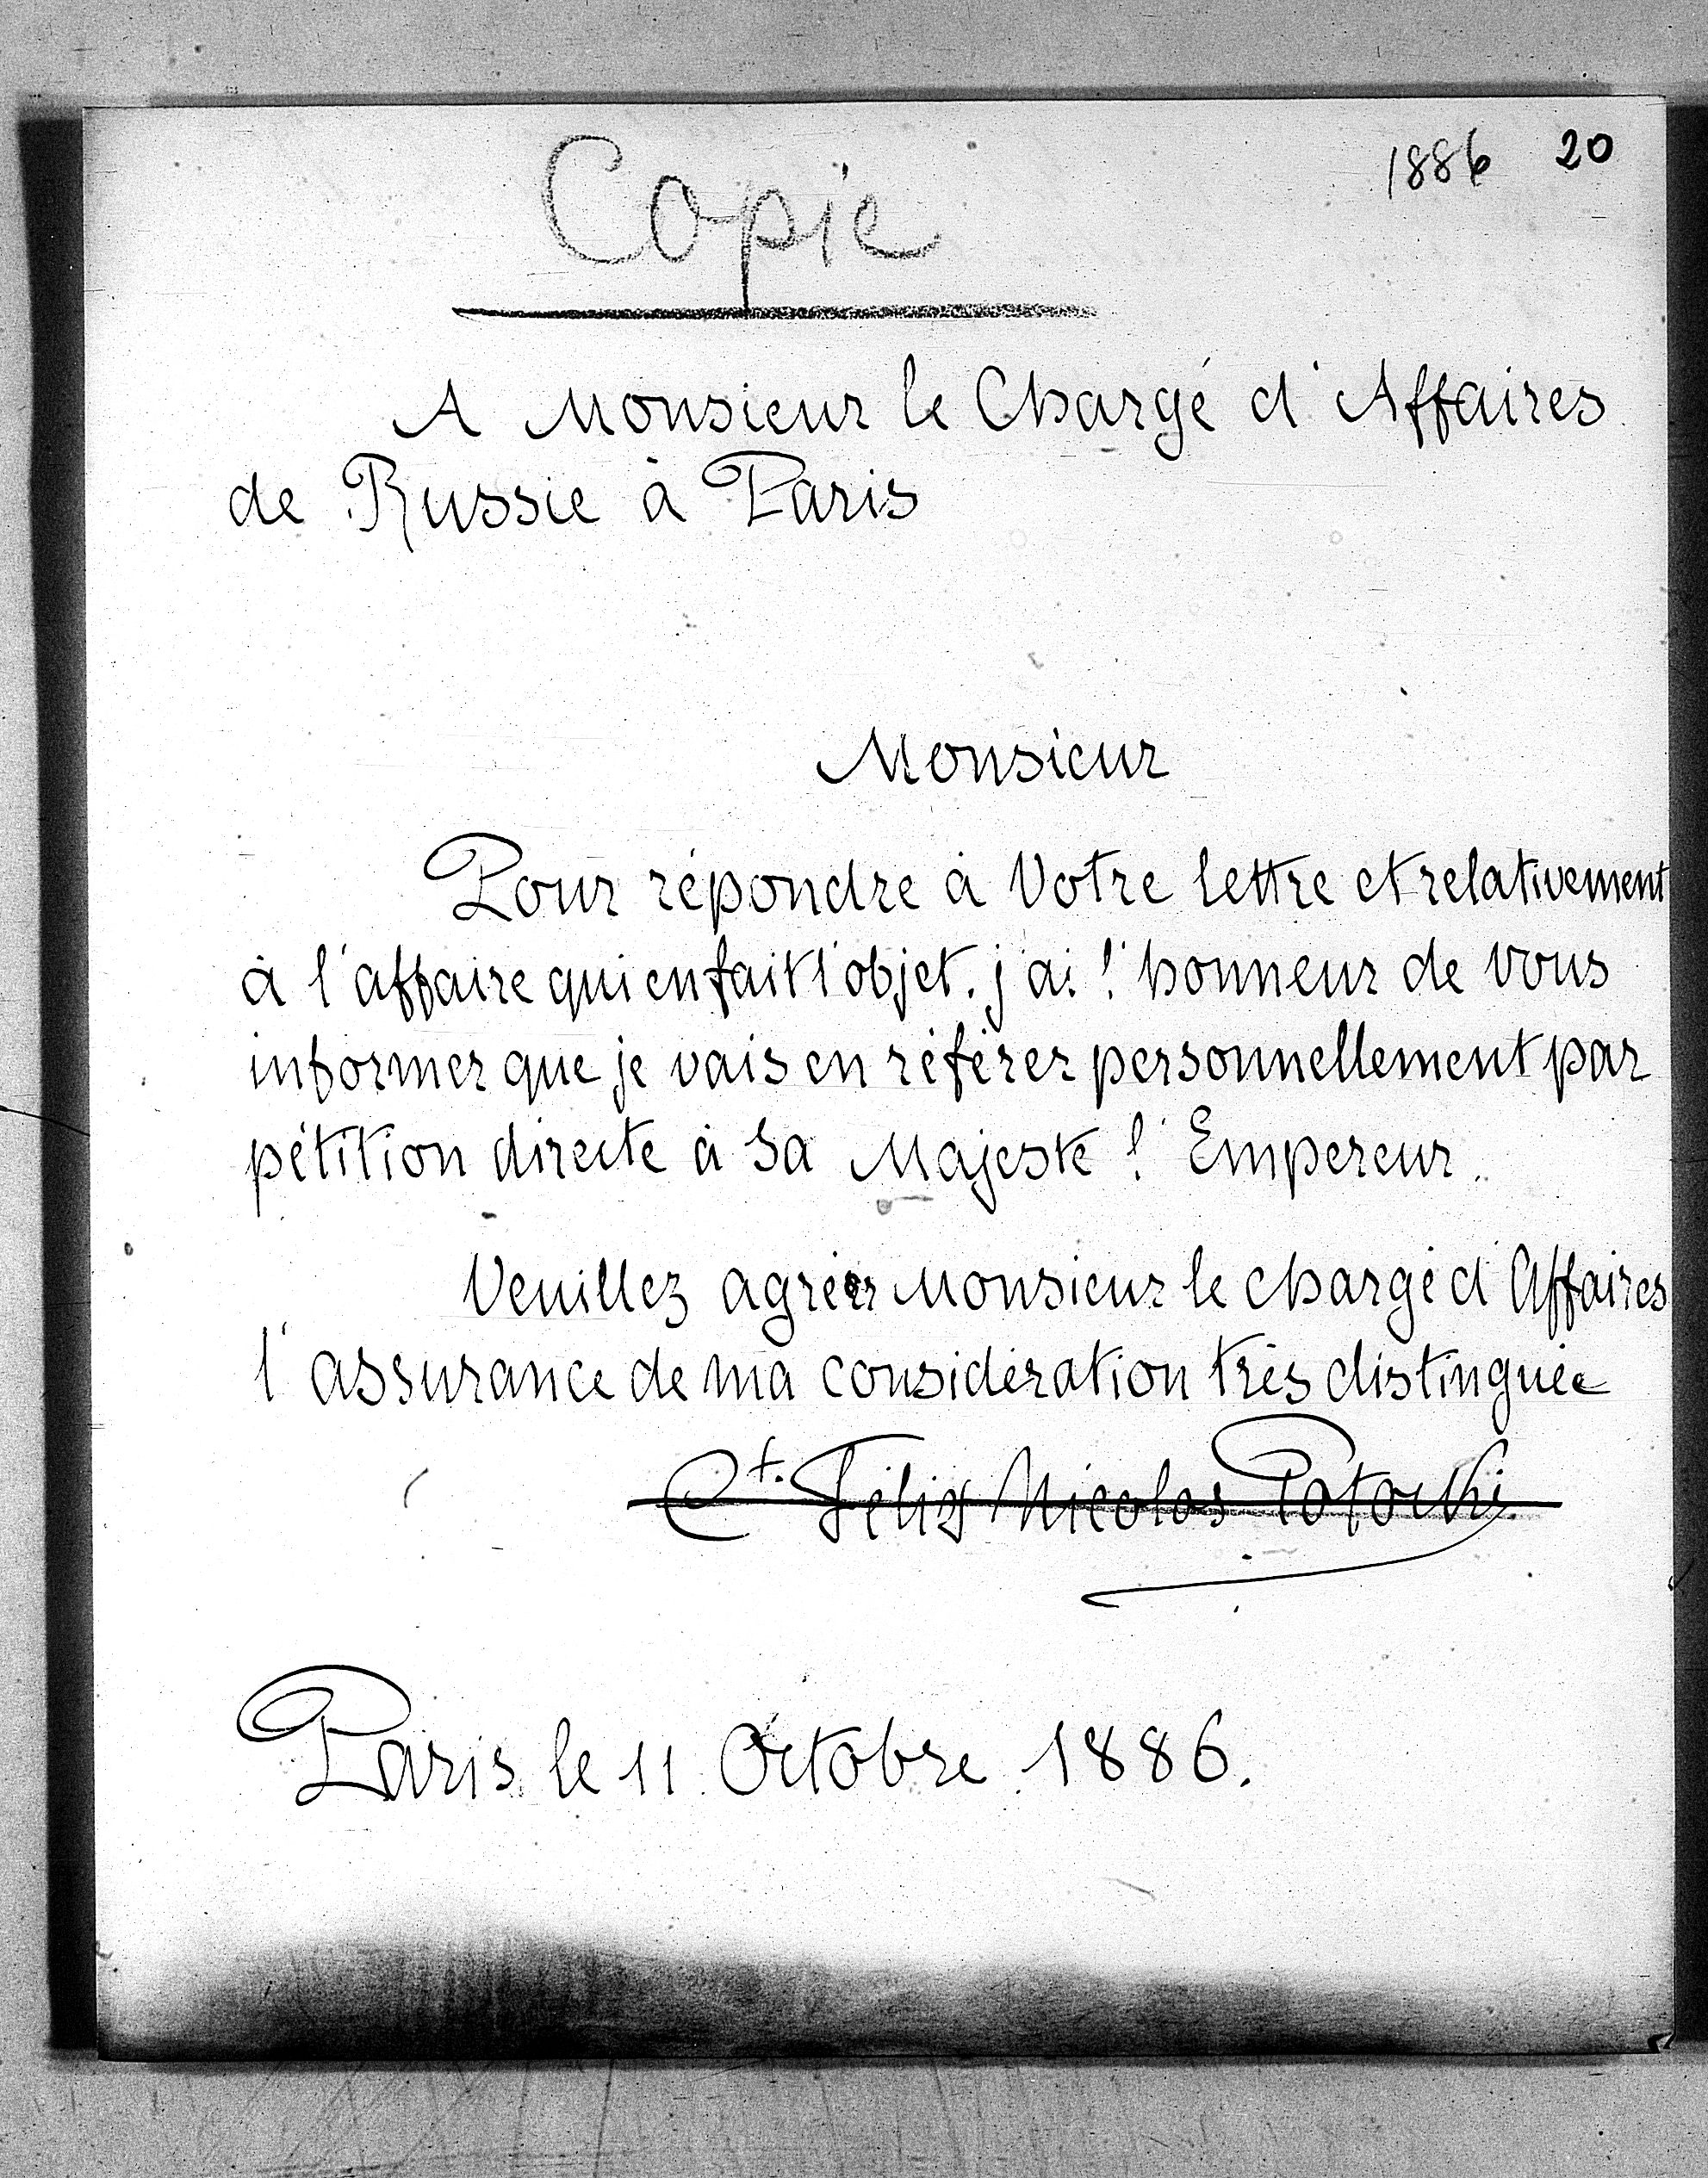 1886 20
Copie
A Monsieur le Chargé d'Affaires
de Russie à Paris
Monsieur
Pour répondre à Votre lettre et relativement
à l'affaire qui en fait l'objet. j'ai l'honneur de vous
informer que je vais en référer personnellement par
pétition directe à Sa Majesté l'Empereur.
Veuillez agréer Monsieur le chargé d'Affaires
l'assurance de ma considération très distinguée
Ct. Félix Nicolas Potocki
Paris le 11 Octobre 1886.